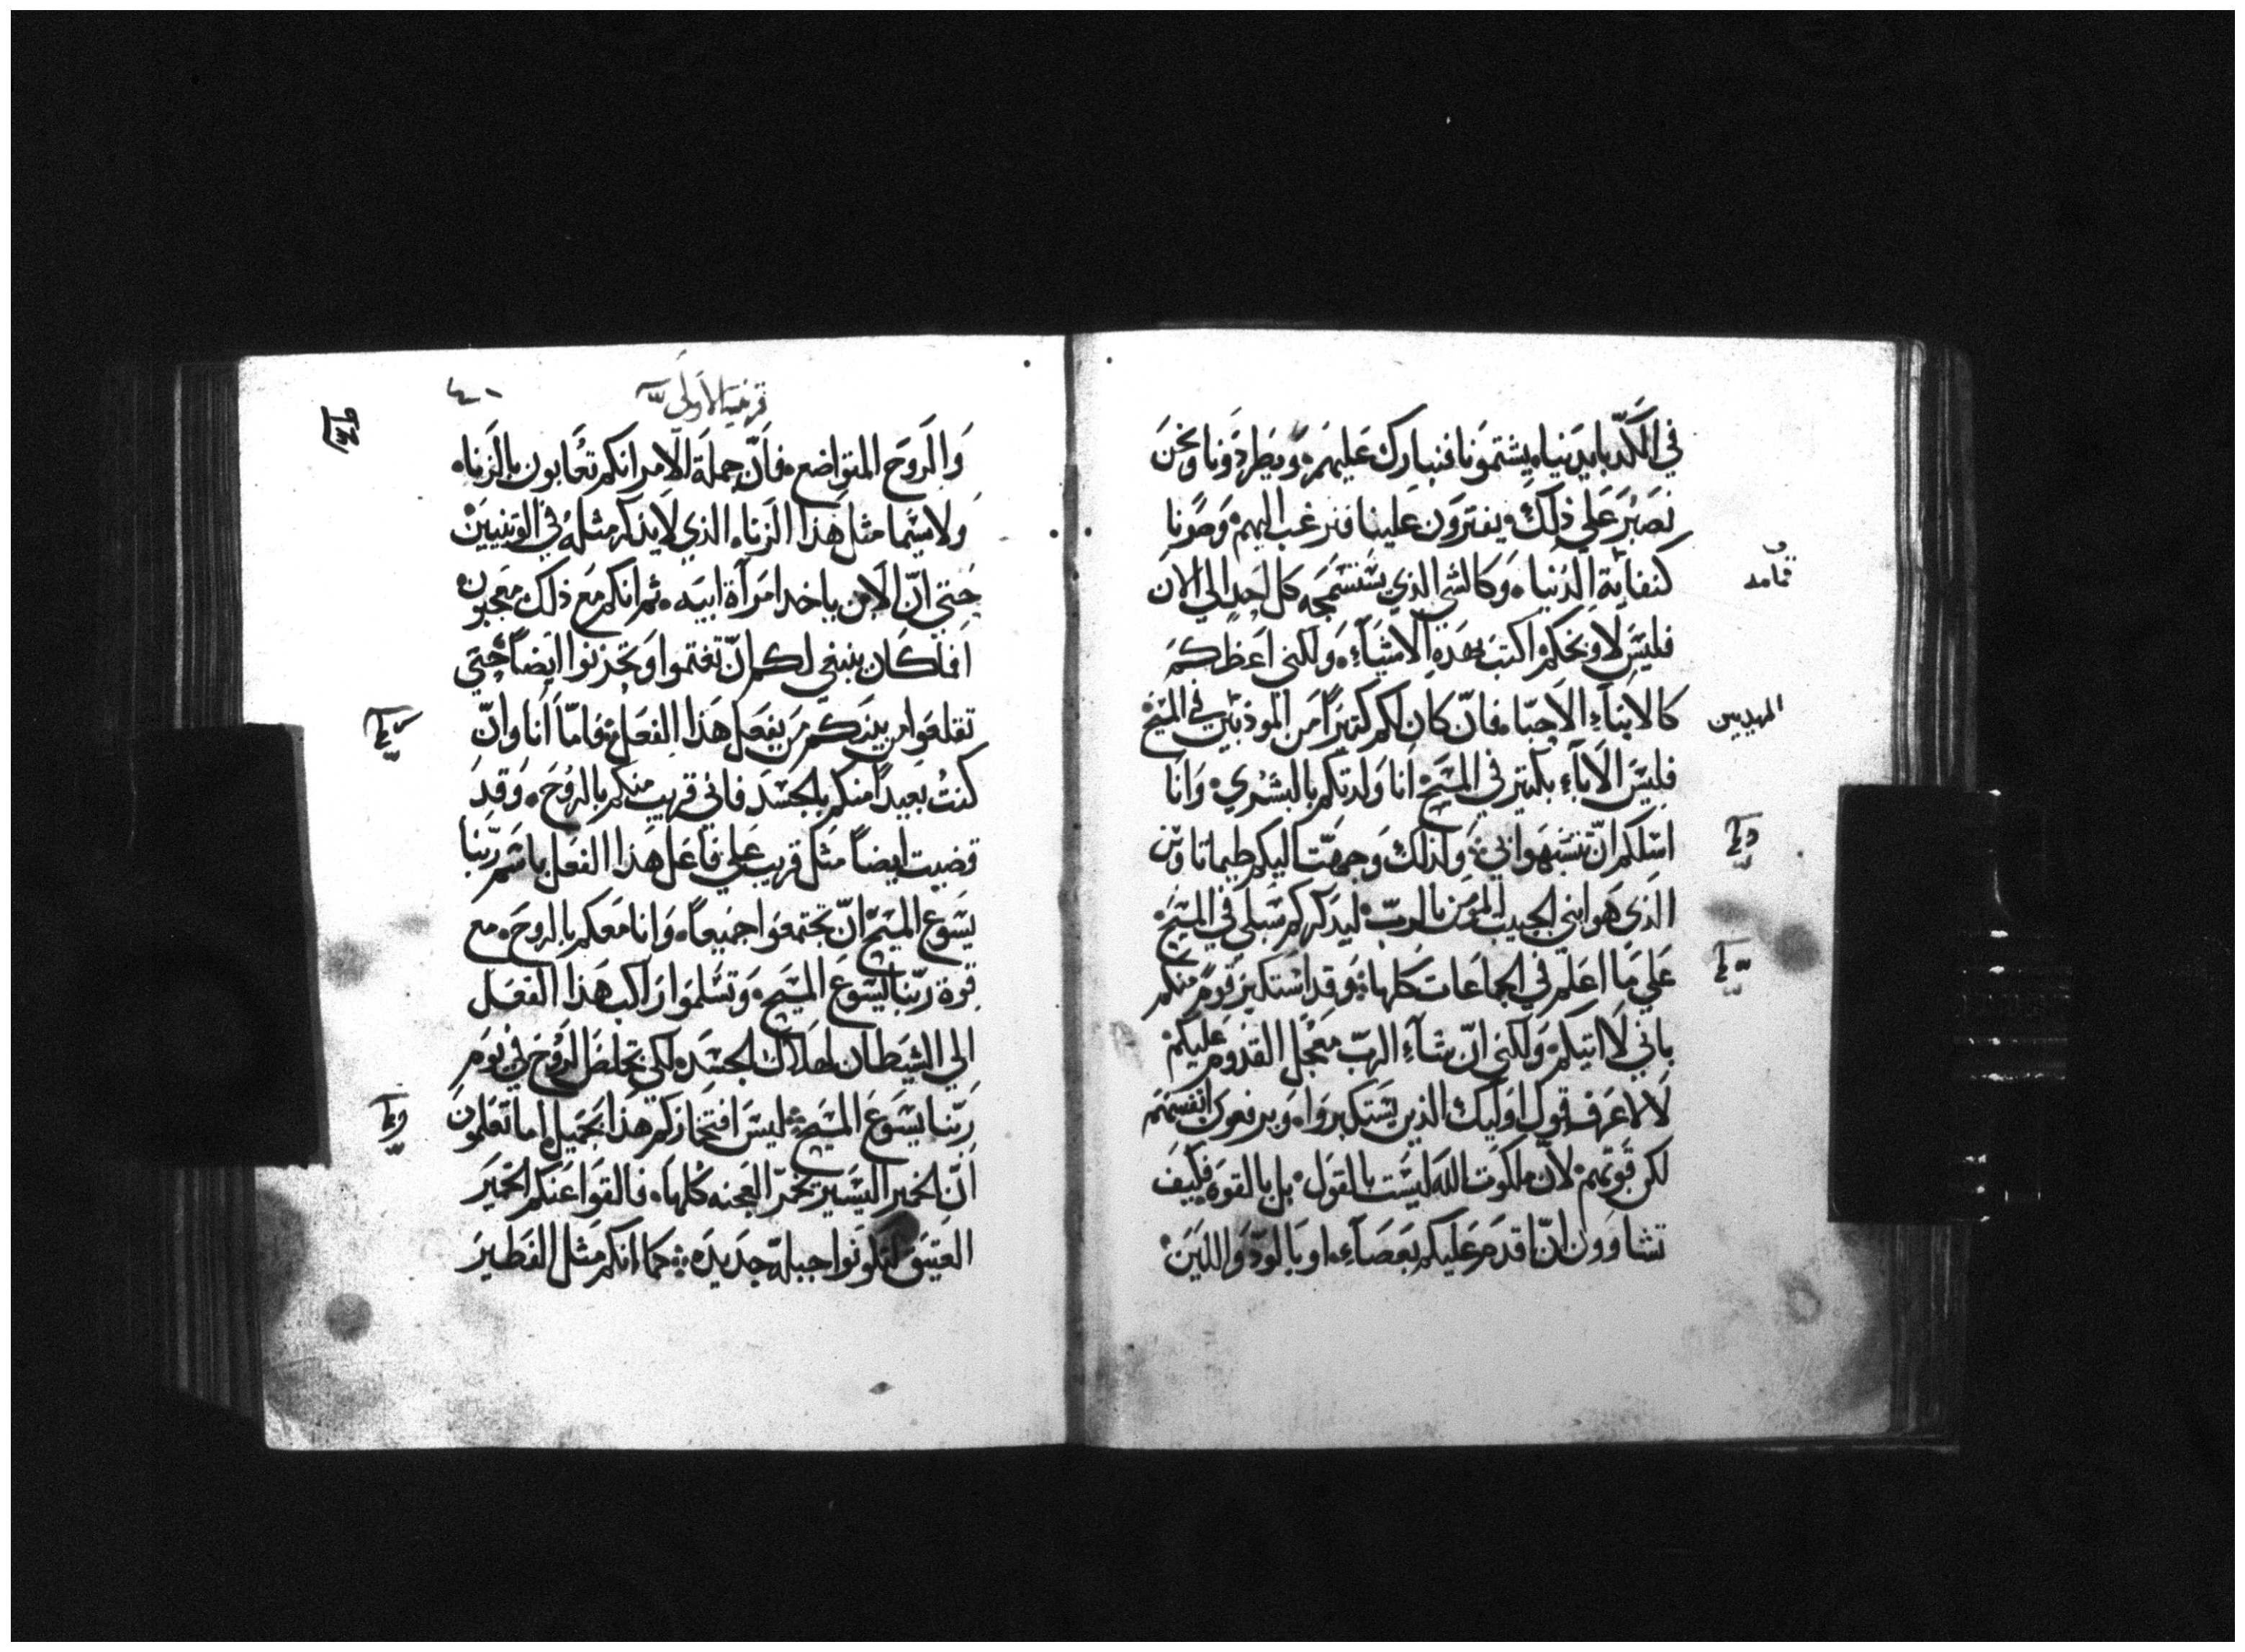 في الكد بايدينا، يشتمونا فنبارك عليهم، ويطردونا ونحن
نصبر علي ذلك، يفترون علينا فنرغب اليهم، وصرنا
كنفاية الدنيا، وكالشي الذي يستسمجه كل احد الي الان
قمامه
فليس لاوبخكم اكتب بهذه الاشياء، ولكني اعظكم
كالابناء الاحبا، فان كان لكم كتيرا من المودبين في المسيح
المهديين
فليس الاباء بكتير في المسيح، انا ولدتكم بالبشري، وانا
اسلكم ان تتشبهوا بي، ولذلك وجهت اليكم طيماتاوس
الذي هو ابني الحبيب المومن بالرب، ليذكركم سبلي في المسيح
علي ما اعلم في الجماعات كلها، وقد استكبر قوم منكم
باني لا اتيكم، ولكني ان شاء الرب معجل القدوم عليكم
لا لاعرف قول اوليك الذين يستكبروا، ويرفعون انفسهم
لكن قوتهم، لان ملكوت الله ليست بالقول، بل بالقوه فكيف
تشاوون ان اقدم عليكم بعصاء، او بالود واللين،
قرنتيه الاولي
٤٠
والروح المتواضع، فان جملة الامر انكم تعابون بالزناه
ولاسيما مثل هذا الزناء الذي لا يذكر مثله في الوتنيين
حتي ان الابن ياخد امراة ابيه، ثم انكم مع ذلك معجبون
افلا كان ينبغي لكم ان تغتموا وتحزنوا ايضا حتي
تقلعوا من بينكم من يفعل هذا الفعل، فاما انا وان
كنت بعيدا منكم بالجسد فاني قريب منكم بالروح، وقد
قضيت ايضا مثل قريب علي فاعل هذا الفعل باسم ربنا
يسوع المسيح ان تجتمعوا جميعا، وانا معكم بالروح، مع
قوة ربنا يسوع المسيح، وتسلموا راكب هذا الفعل
الي الشيطان لهلاك الجسد، لكي تخلص الروح في يوم
ربنا يسوع المسيح، ليس افتخاركم هذا بجميل، اما تعلمون
ان الخمير اليسير يخمر العجنه كلها، فالقوا عنكم الخمير
العتيق لتكونوا جبلة جديده، كما انكم مثل الفطير